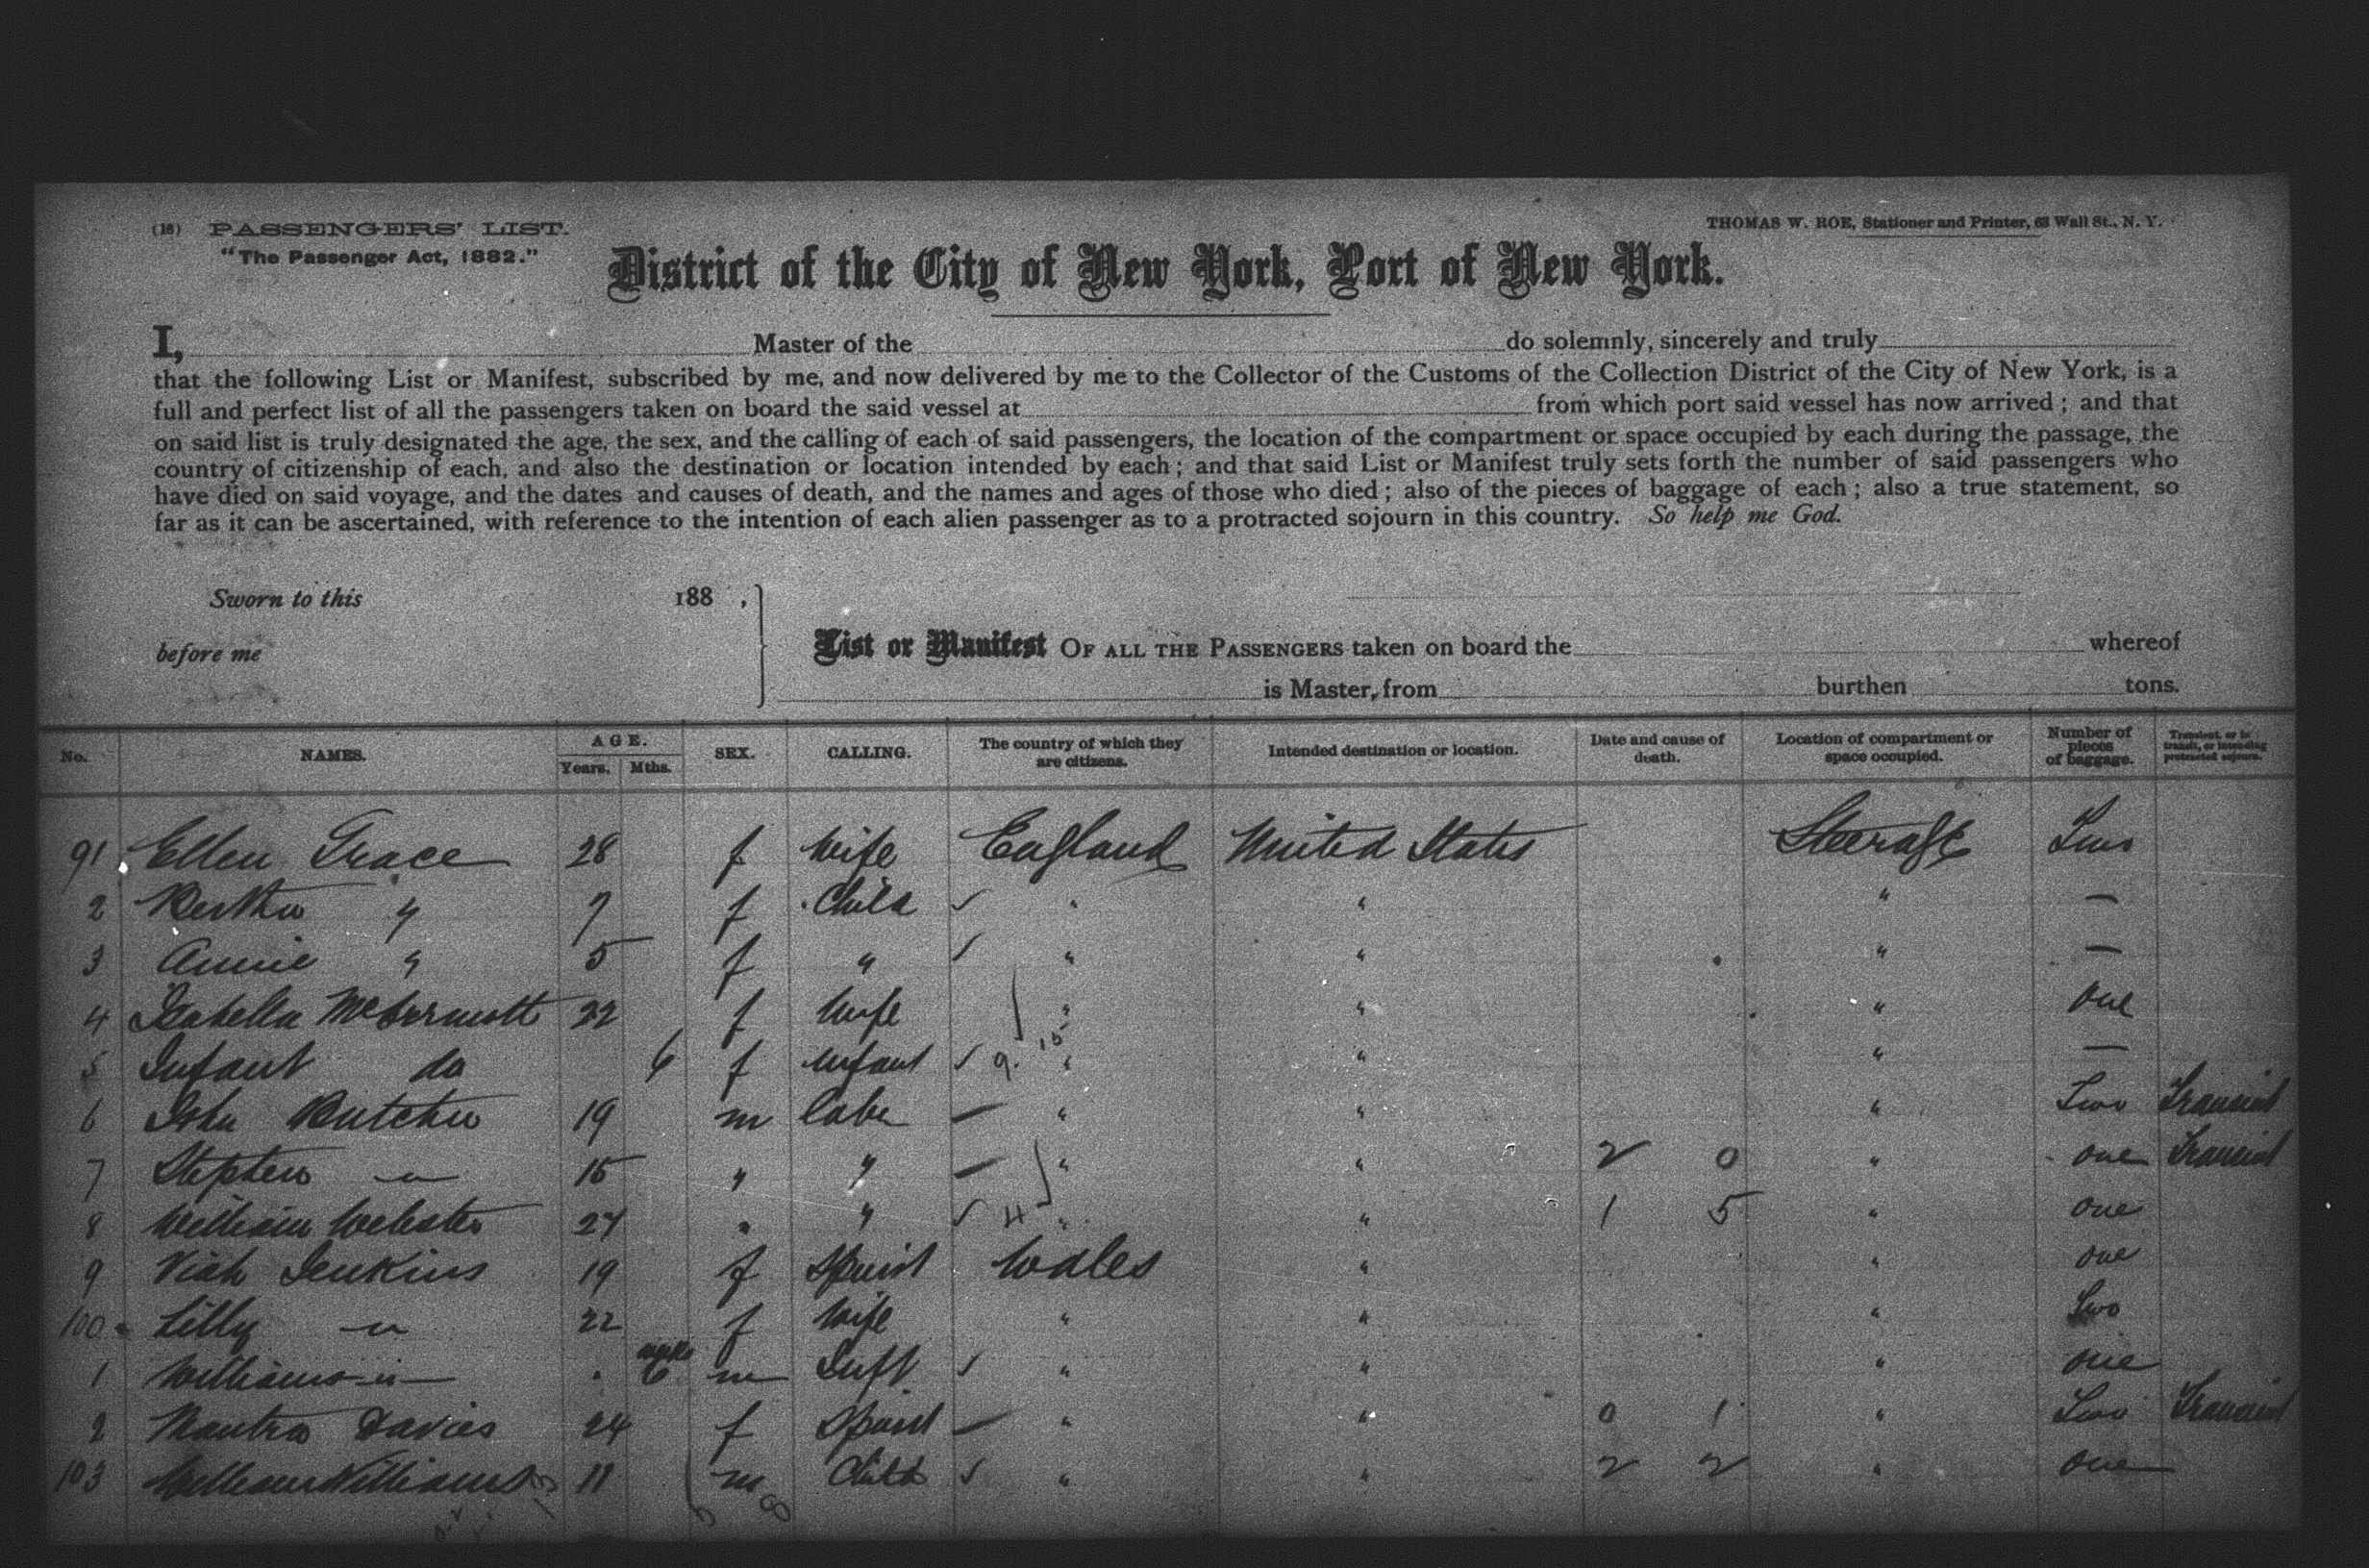 (18) PASSENGERS' LIST.
THOMAS W. ROE, Stationer and Printer, 63 Wall St., N. Y.
"The Passenger Act, 1882."
District of the City of New York, Port of New York.
I, Master of the do solemnly, sincerely and truly
that the following List or Manifest, subscribed by me, and now delivered by me to the Collector of the Customs of the Collection District of the City of New York, is a
full and perfect list of all the passengers taken on board the said vessel at from which port said vessel has now arrived; and that
on said list is truly designated the age, the sex, and the calling of each of said passengers, the location of the compartment or space occupied by each during the passage, the
country of citizenship of each, and also the destination or location intended by each; and that said List or Manifest truly sets forth the number of said passengers who
have died on said voyage, and the dates and causes of death, and the names and ages of those who died; also of the pieces of baggage of each; also a true statement, so
far as it can be ascertained, with reference to the intention of each alien passenger as to a protracted sojourn in this country. So help me God.
Sworn to this 188 ,
before me
List or Manifest OF ALL THE PASSENGERS taken on board the whereof
is Master, from burthen tons.
No. NAMES. AGE. Years. Mths. SEX. CALLING. The country of which they are citizens. Intended destination or location. Date and cause of death. Location of compartment or space occupied. Number of pieces of baggage. Transient, or in transit, or intending protracted sojourn.
91 Ellen Grace 28 f Wife England United States Steerage Two
2 Bertha " 7 f Child " " " —
3 Annie " 5 f " " " " —
4 Isabella McDermott 22 f Wife " " " one
5 Infant do 6 f Infant 9. 15 " " " —
6 John Butcher 19 m Labr " " " Two Transient
7 Stephen " 15 " " " " 2 0 " one Transient
8 William Webster 27 " " 4 " " 1 5 " one
9 Jenkins 19 f Spinst Wales " " one
100 Lilly " 22 f Wife " " " Two
1 William " 6 weeks m Inft " " " one
2 Davies 24 f Spinst " " 0 1 " Two Transient
103 William Williams 11 m Child " " 2 2 " one